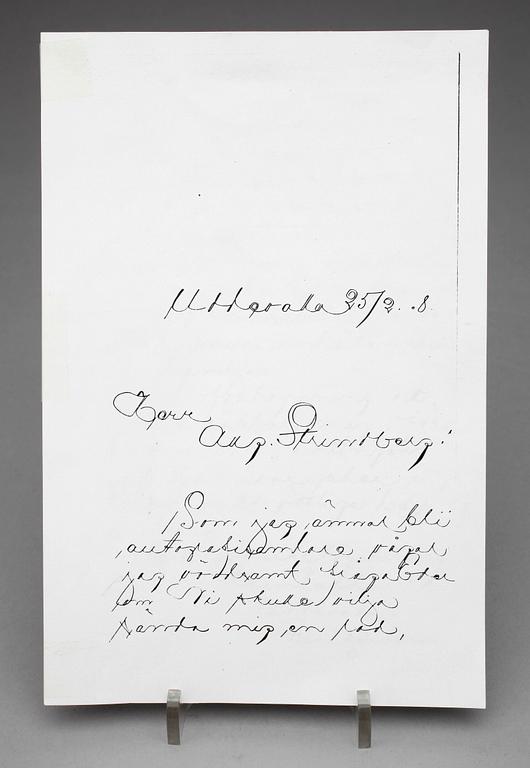 Uddevalla 25/2. 8.
Herr
Aug. Strindberg!
Som jag ämnar bli
autografsamlare, vågar
jag vördsamt fråga Eder
om Ni skulle vilja
sända mig en rad,